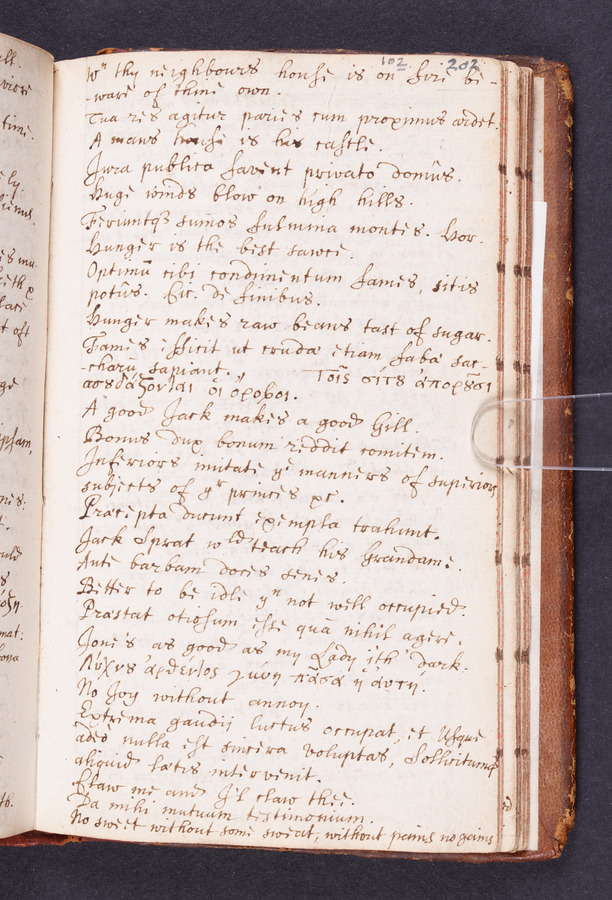 102 202
Wn thy neighbours house is on fire be-
-ware of thine own.
Tua res agitur paries cum proximus ardet.
A mans house is his castle.
Jura publica favent privato domûs.
Huge winds blow on high hills.
Feriuntqz sumōs fulmina montes. Hor.
Hunger is the best sawce.
Optimū cibi condimentum fames, sitis
potûs. Cic. de finibus.
Hunger makes raw beans tast of sugar.
Fames efficit ut cruda etiam faba sac-
-charū sapiant. Τοῖς σίτȣ ἀπορȣσι
ασȣδάζονται οἱ οροβοι.
A good Jack makes a good Gill.
Bonus dux bonum reddit comitem.
Inferiors imitate ye manners of superiors
subjects of yr princes &c.
Præcepta ducunt exempla trahunt.
Jack Sprat wld teach his Grandame.
Ante barbam doces senes.
Better to be idle yn not well occupied.
Præstat otiosum esse quā nihil agere.
Jone's as good as my Lady ith dark.
Λύχνȣ ἀρθέντος γυνὴ πᾶσα ἡ αυτη.
No Joy without annoy.
Extrema gaudij luctus occupat, et Usque
adeò nulla est sincera voluptas, Sollicitumqz
aliquid lætis intervenit.
Claw me and I'l claw thee.
Da mihi mutuum testimonium.
No sweet without some sweat, without pains no gains